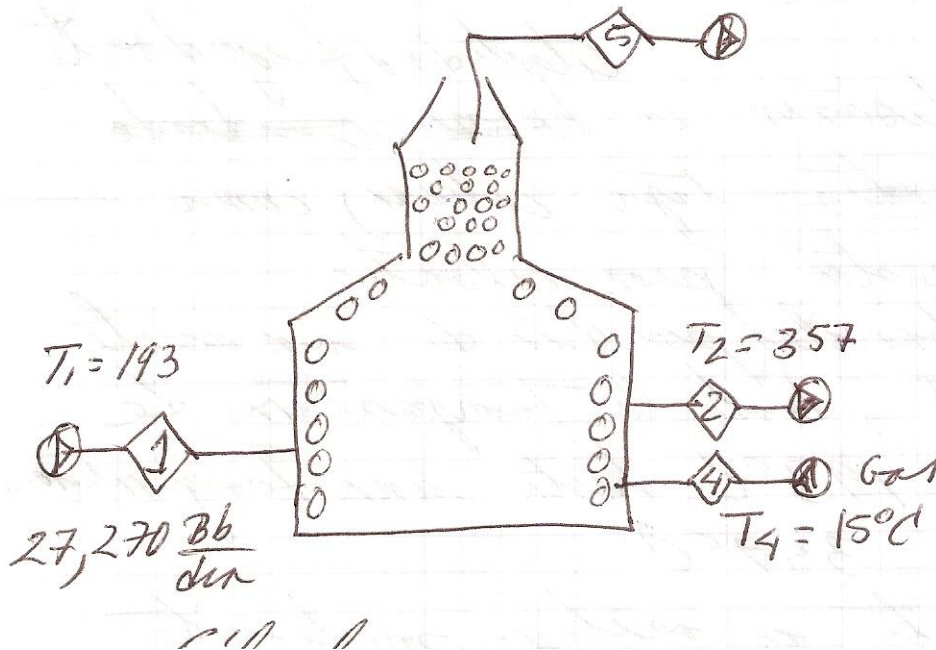 5
T₁ = 193
1
27,270 Bb/dia
T₂ = 357
2
4
Gas
T₄ = 15°C